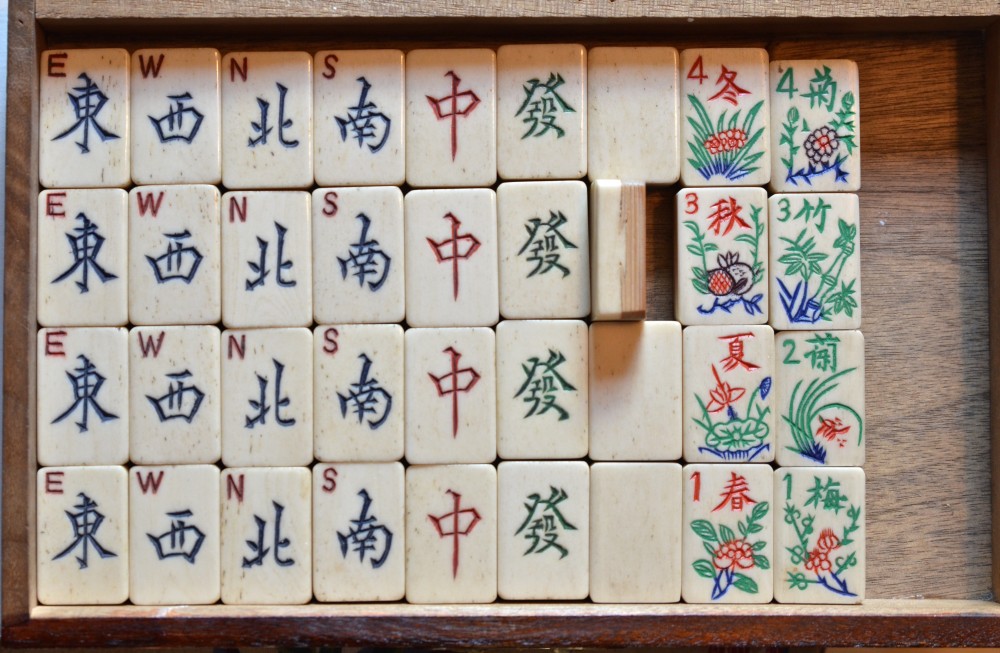 E 東 W 西 N 北 S 南 中 發 4 冬 4 菊
E 東 W 西 N 北 S 南 中 發 3 秋 3 竹
E 東 W 西 N 北 S 南 中 發 夏 2 蘭
E 東 W 西 N 北 S 南 中 發 1 春 1 梅